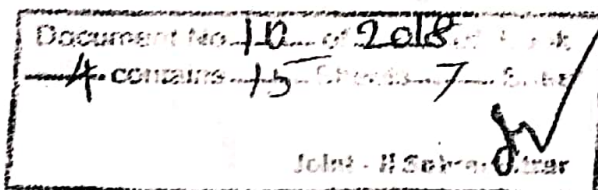 Document No. 10 of 2018 of Book
4 contains 15 Sheets 7 Sheet
Joint - II Sub Registrar